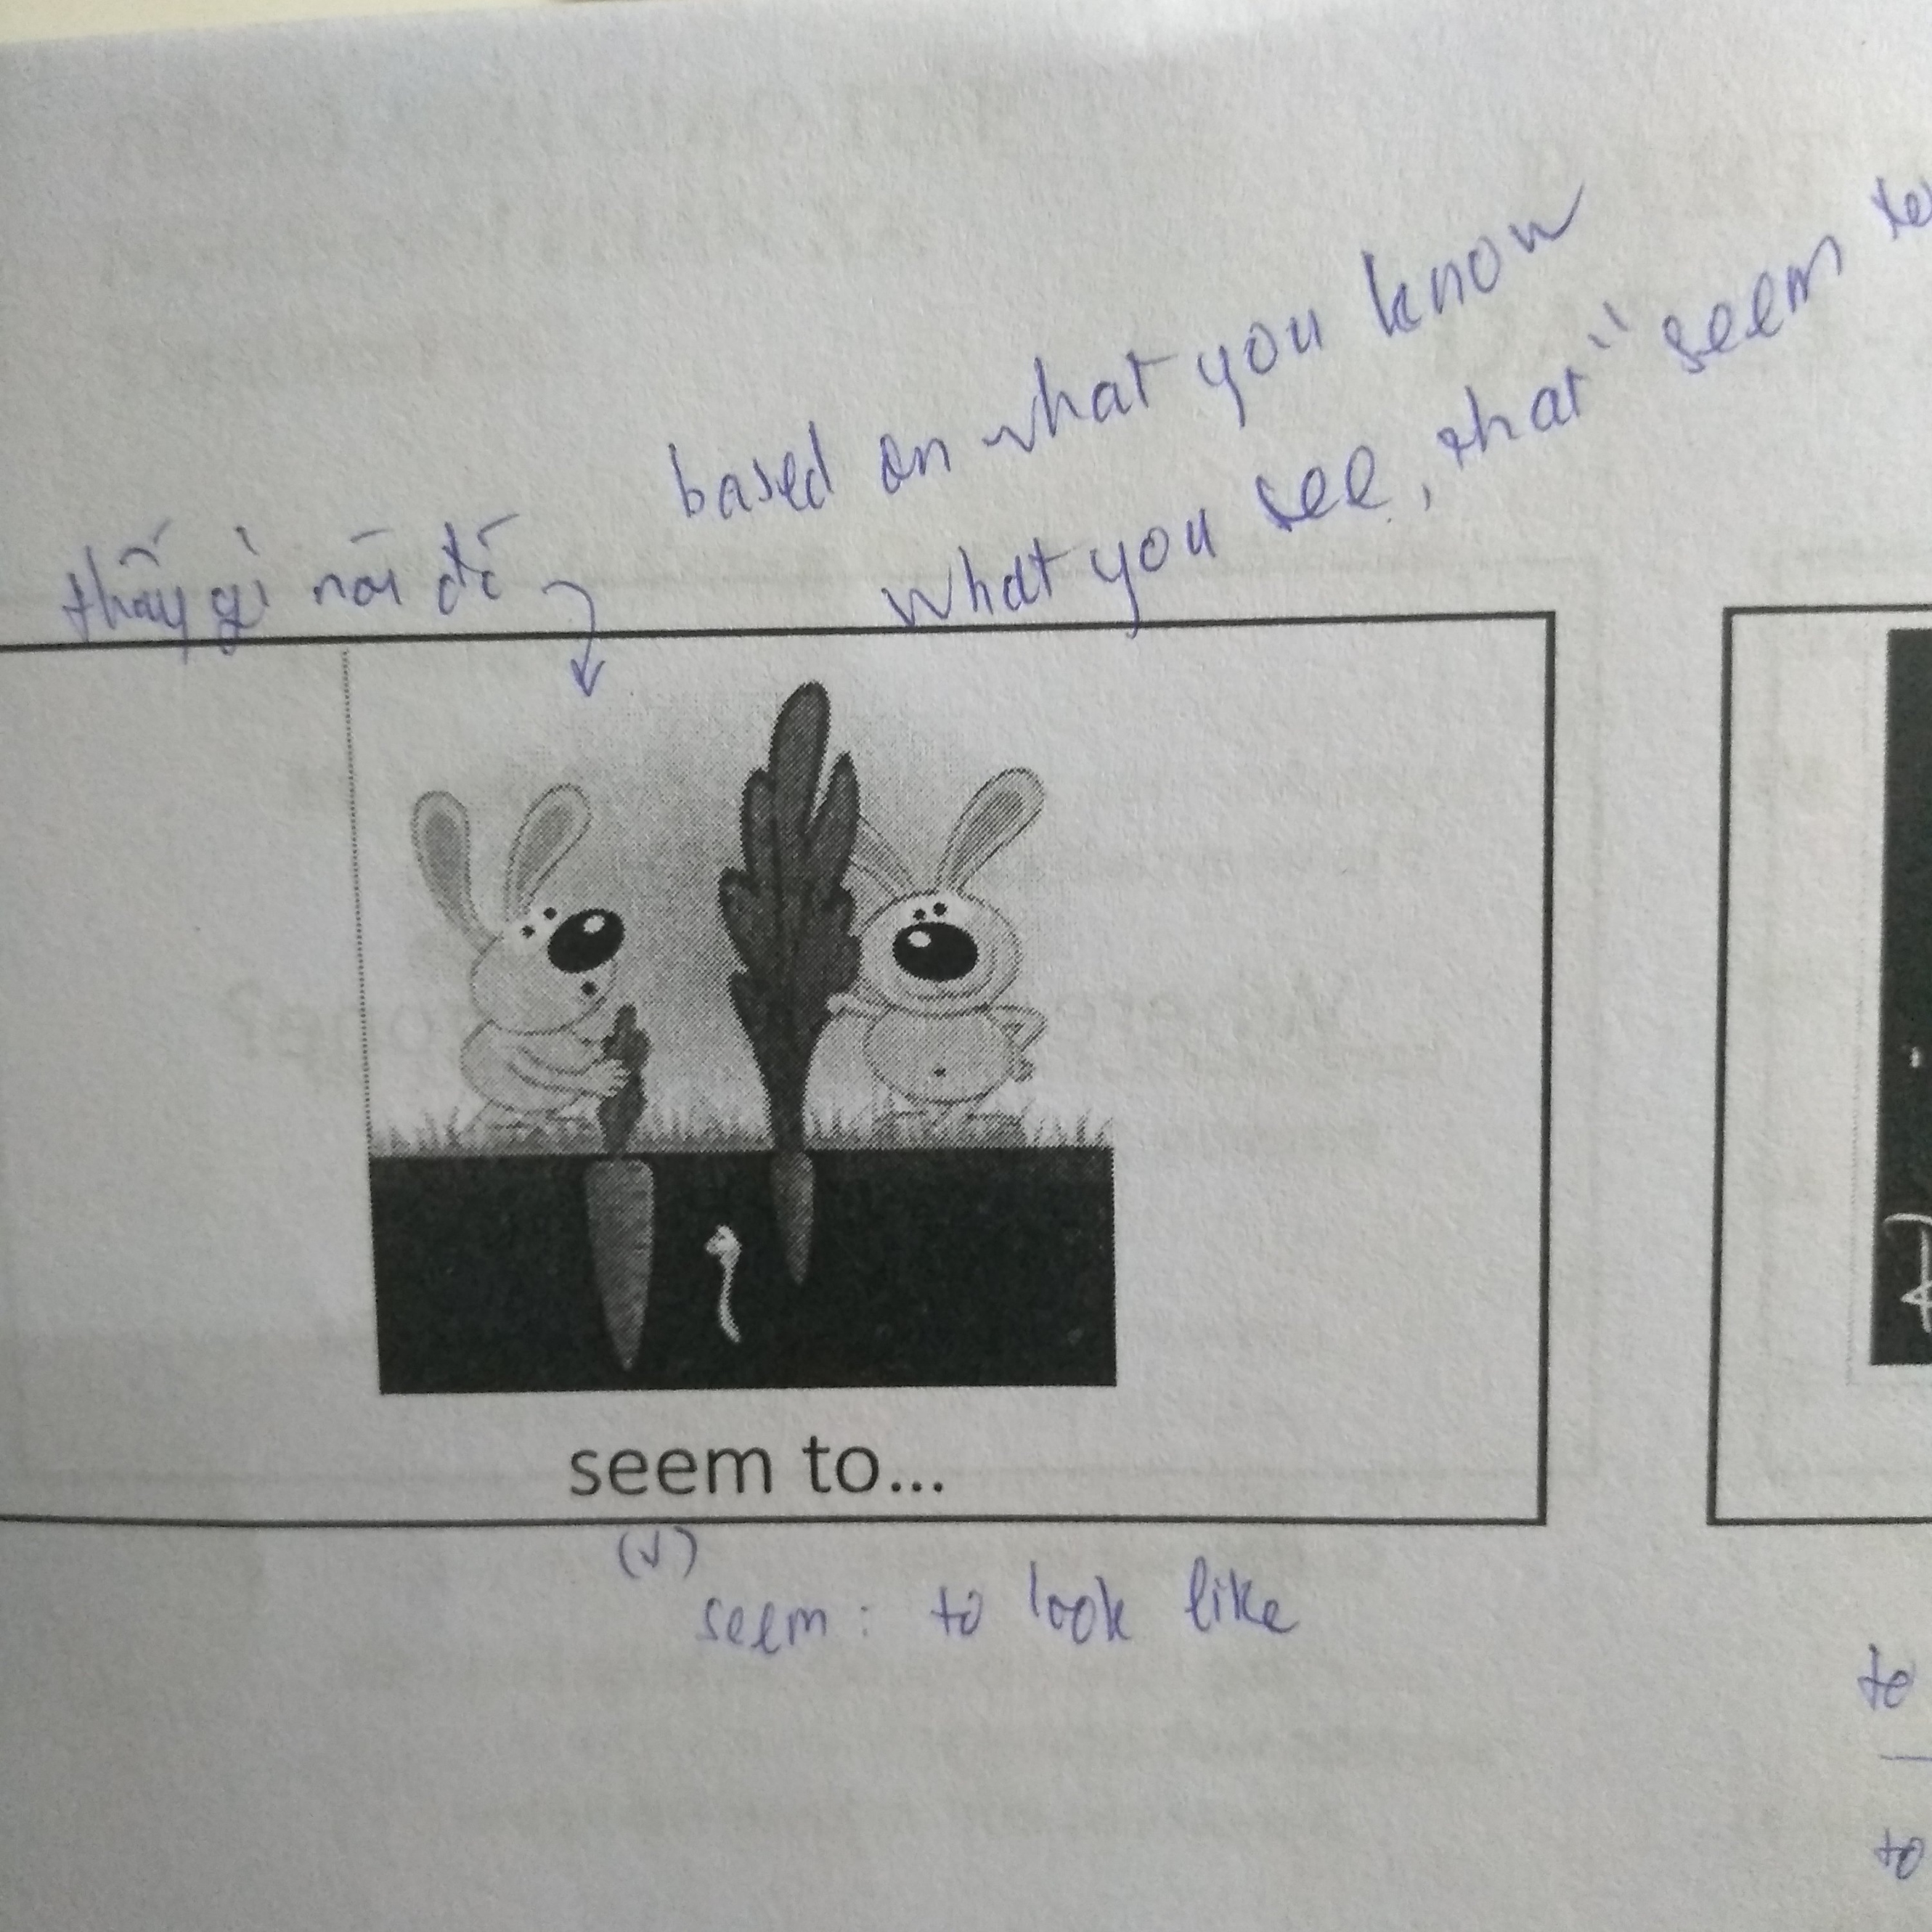 based on what you know
what you see, that" seem to
thấy gì nói đó
seem to...
(v)
seem: to look like
to
to